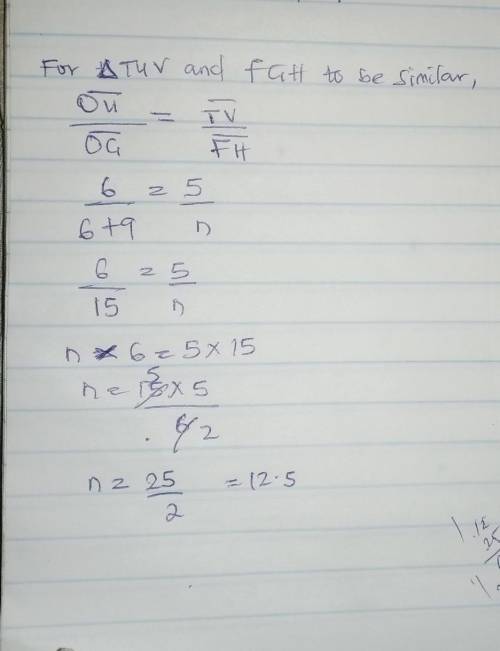 For ΔTUV and FGH to be similar,
OU = TV
OG FH
6 = 5
6+9 n
6 = 5
15 n
n × 6 = 5 × 15
5
n = 15 × 5
6 2
n = 25 = 12.5
2